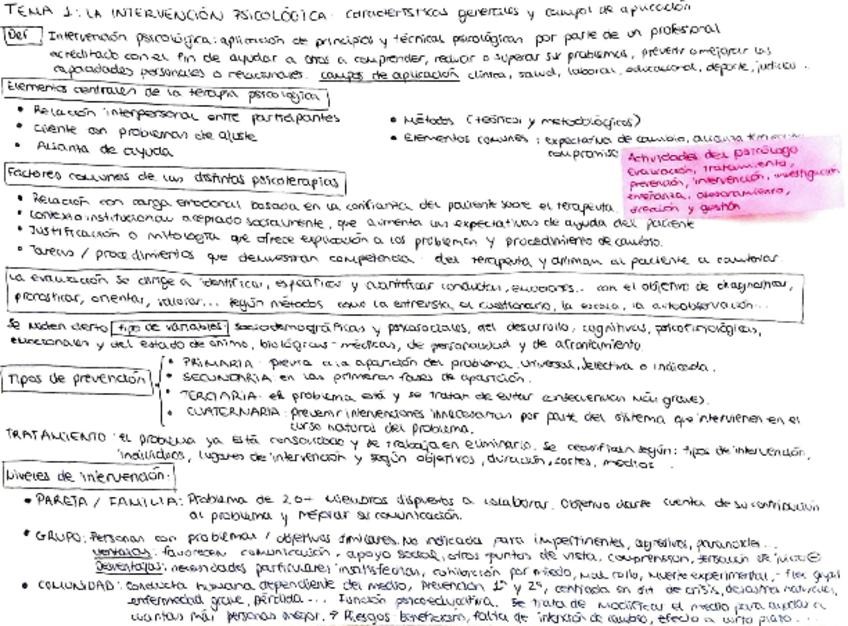 TEMA 1: LA INTERVENCIÓN PSICOLÓGICA: características generales y campos de aplicación
Def Intervención psicológica: aplicación de principios y técnicas psicológicas por parte de un profesional
acreditado con el fin de ayudar a otros a comprender, reducir o superar sus problemas, prevenir o mejorar las
capacidades personales o relacionales. campos de aplicación clínica, salud, laboral, educacional, deporte, jurídico...
Elementos centrales de la terapia psicológica
• Relación interpersonal entre participantes
• Cliente con problemas de ajuste
• Alianza de ayuda
• Métodos (teóricos y metodológicos)
• Elementos comunes: expectativa de cambio, alianza
compromiso
Actividades del psicólogo
Evaluación, tratamiento,
prevención, intervención, investigación
enseñanza, asesoramiento,
dirección y gestión
Factores comunes de las distintas psicoterapias
• Relación con carga emocional basada en la confianza del paciente sobre el terapeuta.
• Contexto institucional aceptado socialmente, que aumenta las expectativas de ayuda del paciente
• Justificación o mitología que ofrece explicación a los problemas y procedimiento de cambio.
• Tareas / procedimientos que demuestran competencia del terapeuta y animan al paciente a cambiar
La evaluación se dirige a identificar, especificar y cuantificar conductas, emociones.. con el objetivo de diagnosticar,
pronosticar, orientar, valorar... según métodos como la entrevista, el cuestionario, la escala, la autoobservación...
Se miden cierto tipo de variables sociodemográficas y psicosociales, del desarrollo, cognitivas, psicofisiológicas,
emocionales y del estado de ánimo, biológicas-médicas, de personalidad y de afrontamiento.
Tipos de prevención
• PRIMARIA: previa a la aparición del problema. Universal, selectiva o indicada.
• SECUNDARIA: en las primeras fases de aparición.
• TERCIARIA: el problema está y se tratan de evitar consecuencias más graves.
• CUATERNARIA: prevenir intervenciones innecesarias por parte del sistema que intervienen en el
curso natural del problema.
TRATAMIENTO: el problema ya está consolidado y se trabaja en eliminarlo. Se clasifican según: tipos de intervención,
individuos, lugares de intervención y según objetivos, duración, costes, medios..
Niveles de intervención:
• PAREJA / FAMILIA: Problema de 2 o + miembros dispuestos a colaborar. Objetivo darse cuenta de su contribución
al problema y mejorar su comunicación.
• GRUPO: Personas con problemas / objetivos similares. No indicada para impertinentes, agresivos, paranoides...
Ventajas: favorecen comunicación, apoyo social, otros puntos de vista, comprensión,
Desventajas: necesidades particulares insatisfechas, cohibición por miedo, mal rollo, muerte experimental, - flex grupal
• COMUNIDAD: conducta humana dependiente del medio, Prevención 1ª y 2ª, centrada en sit de crisis, desastres naturales,
enfermedad grave, pérdida... Función psicoeducativa. Se trata de modificar el medio para ayudar a
cuantas más personas mejor. → Riesgos: beneficiarios, falta de intención de cambio, efecto a corto plazo...